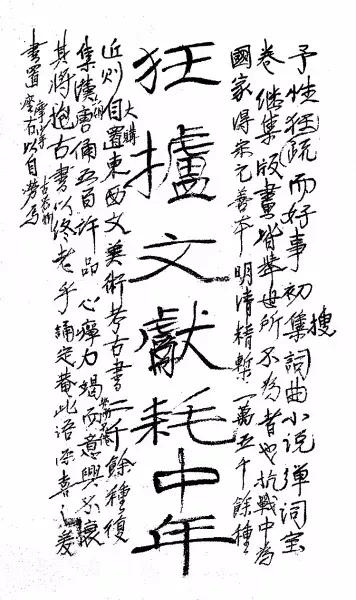 予性狂疏而好事初搜集詞曲小说弹词宝
卷继集版畫皆举世所不為者也抗戰中為
國家得宋元善本明清精槧一萬五千餘種
狂攎文獻耗中年
近则大購自置東西文美術考古書二千餘種復
集漢唐俑五百许品心瘁力竭而意興不衰
其将抱古書以终老乎誦定菴此语深喜之爰
書置座右以自焉